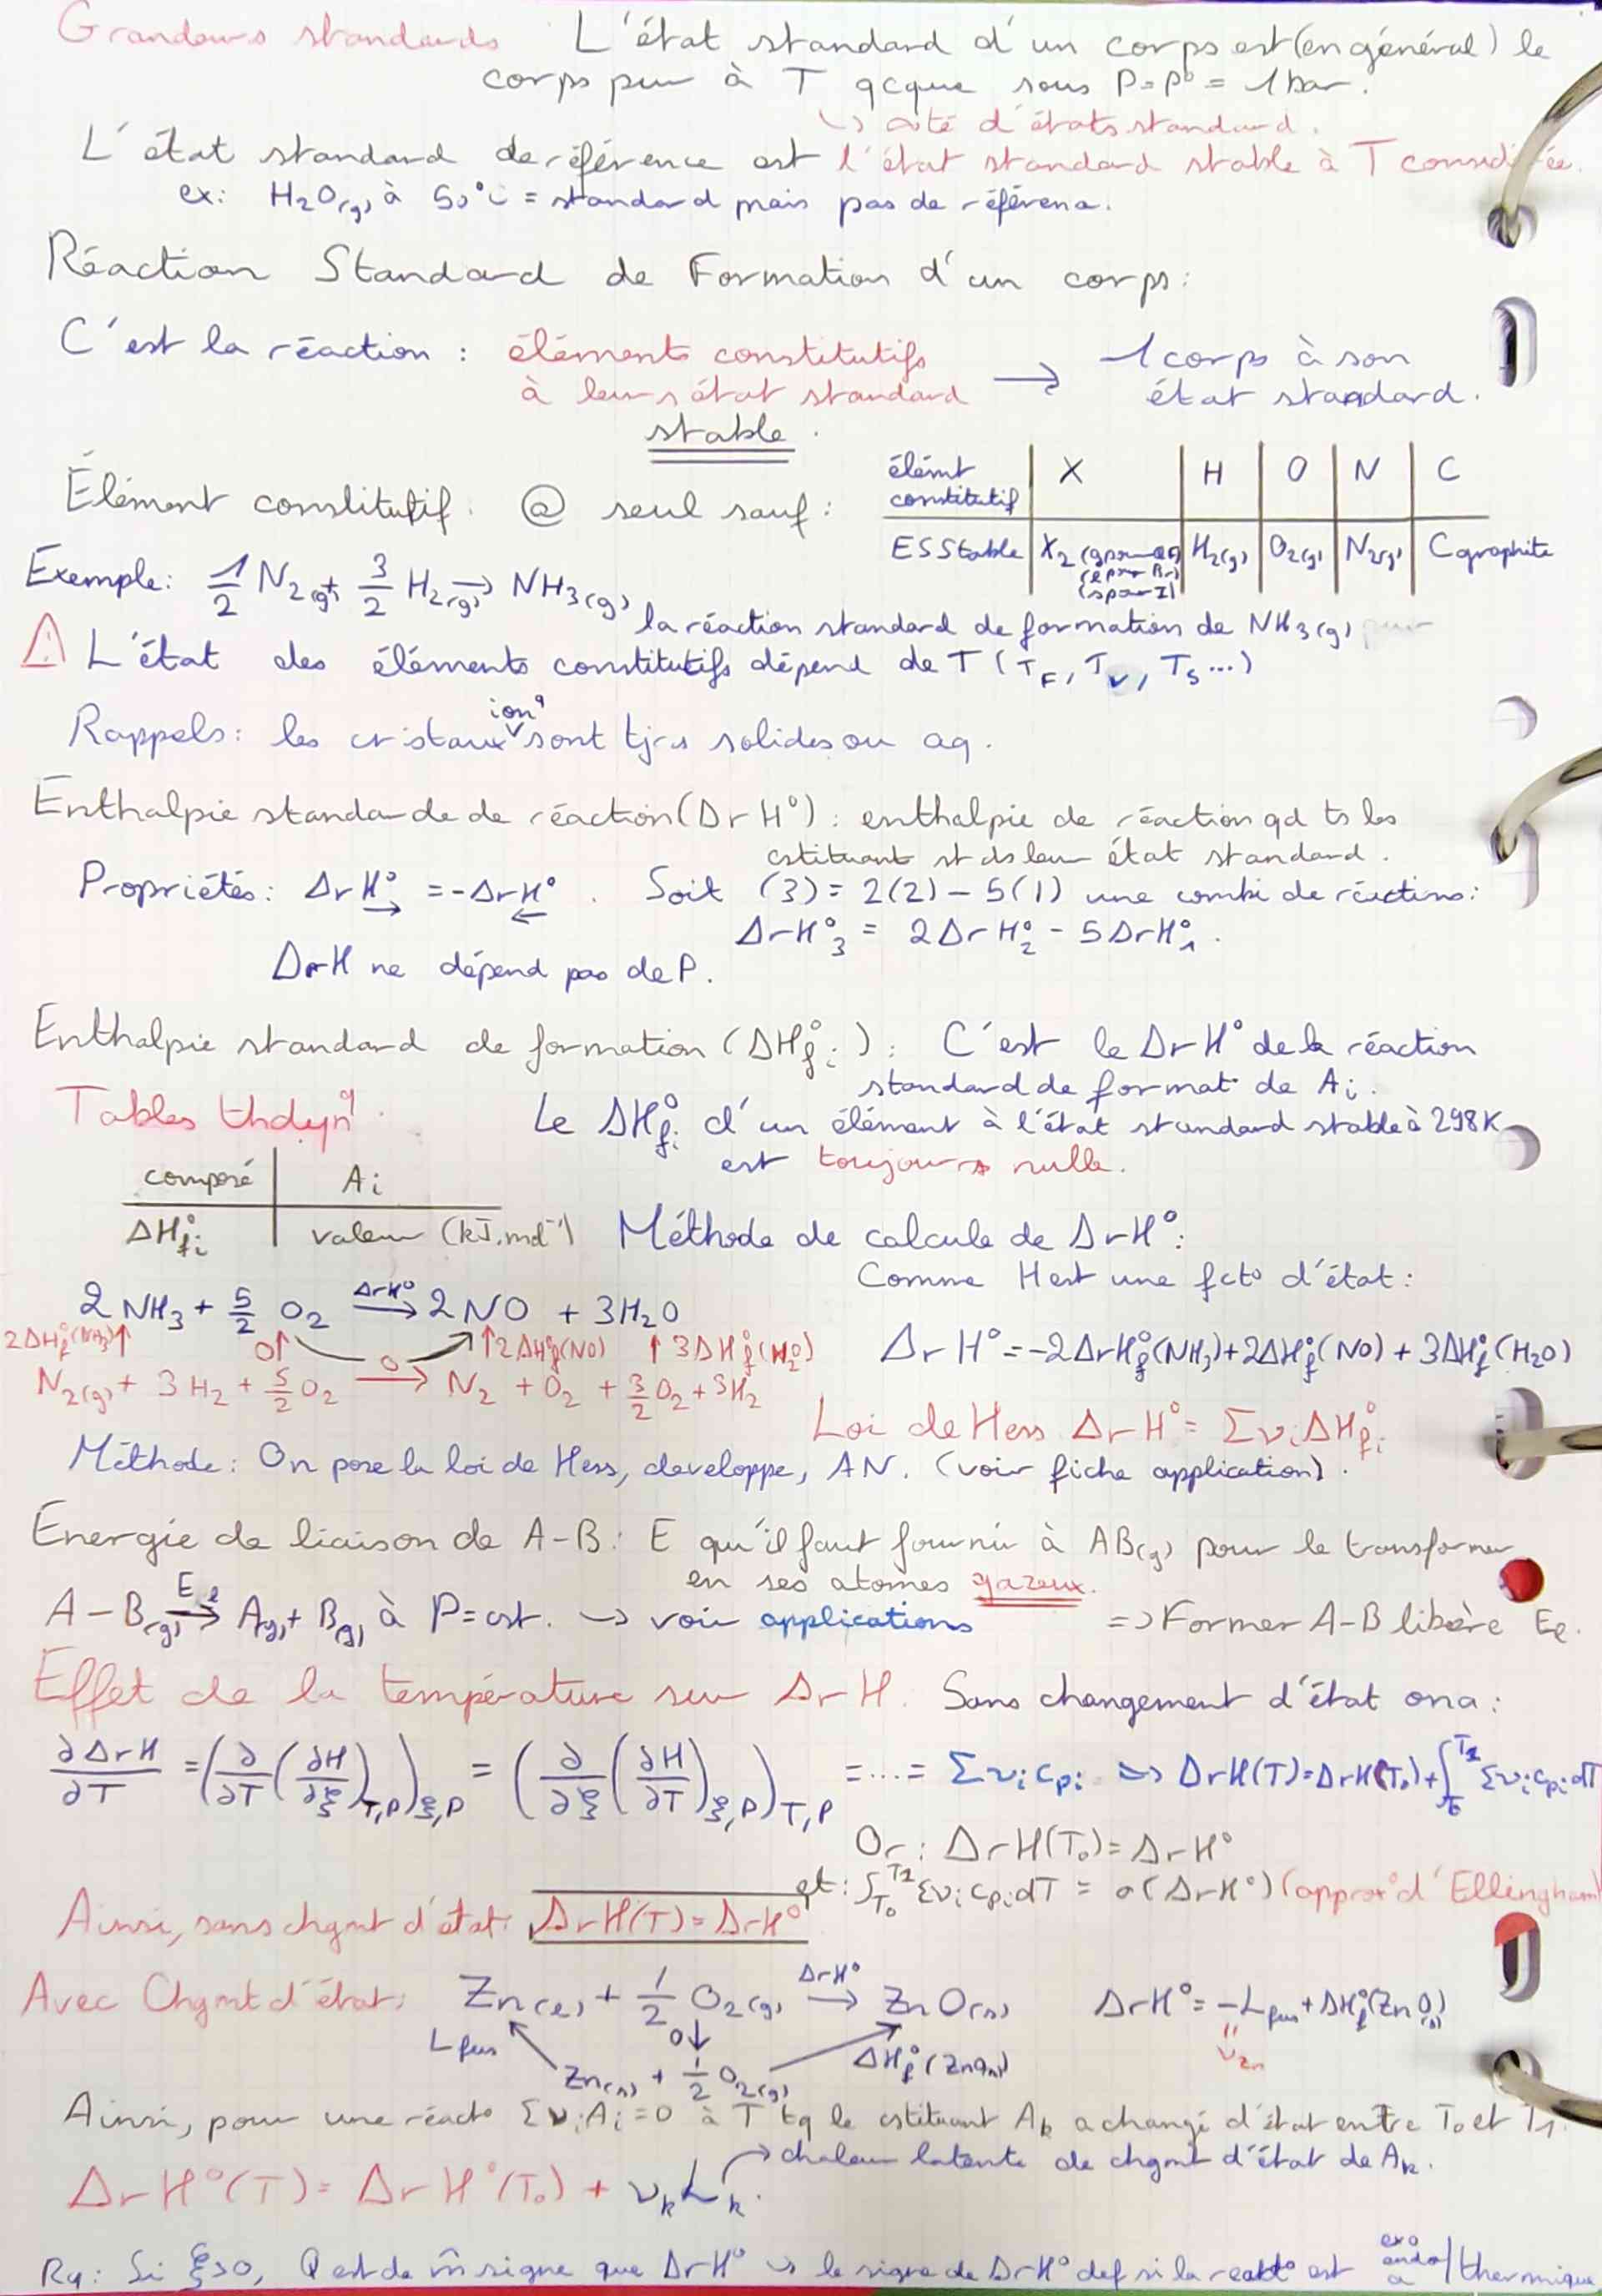 Grandeurs standards L'état standard d'un corps est (en général) le
corps pur à T qcque sous P=P° = 1 bar.
↳ ∞té d'états standard.
L'état standard de référence est l'état standard stable à T considérée.
ex: H₂O(g) à 50°C = standard mais pas de référence.
Réaction Standard de Formation d'un corps:
C'est la réaction : éléments constitutifs → 1 corps à son
à leurs état standard état standard.
stable.
Élément constitutif: @ seul sauf:
élémt constitutif | X | H | O | N | C
ESStable | X₂ (g pour Cl F) (l pour Br) (s pour I) | H₂(g) | O₂(g) | N₂(g) | C graphite
Exemple: 1/2 N₂(g) + 3/2 H₂(g) → NH₃(g)
la réaction standard de formation de NH₃(g)
⚠ L'état des éléments constitutifs dépend de T (T_F, T_V, T_S ...)
Rappels: les cristaux ion^q sont tjrs solides ou aq.
Enthalpie standard de réaction (ΔrH°) : enthalpie de réaction qd ts les
cstituant st ds leur état standard.
Propriétés: ΔrH°→ = -ΔrH°← . Soit (3) = 2(2) - 5(1) une combi de réactions:
ΔrH°₃ = 2ΔrH°₂ - 5ΔrH°₁ .
ΔrH ne dépend pas de P.
Enthalpie standard de formation (ΔH°fi) : C'est le ΔrH° de la réaction
standard de format° de Ai.
Tables thdyn^q. Le ΔH°fi d'un élément à l'état standard stable à 298K
est toujours nulle.
composé | Ai
ΔH°fi | valeur (kJ.mol⁻¹)
Méthode de calcule de ΔrH°:
Comme H est une fct° d'état:
2 NH₃ + 5/2 O₂ —ΔrH°→ 2 NO + 3H₂O
2ΔH°f(NH₃)↑ 0↑ 0 ↑2ΔH°f(NO) ↑3ΔH°f(H₂O)
ΔrH° = -2ΔrH°f(NH₃) + 2ΔH°f(NO) + 3ΔH°f(H₂O)
N₂(g) + 3H₂ + 5/2 O₂ → N₂ + O₂ + 3/2 O₂ + 3H₂
Loi de Hess ΔrH° = ΣνiΔH°fi
Méthode: On pose la loi de Hess, developpe, AN. (voir fiche application).
Energie de liaison de A-B: E qu'il faut fournir à AB(g) pour le transformer
en ses atomes gazeux.
A-B(g) —Eℓ→ A(g) + B(g) à P=cst. → voir applications => Former A-B libère Eℓ.
Effet de la température sur ΔrH. Sans changement d'état on a:
∂ΔrH/∂T = (∂/∂T (∂H/∂ξ)T,P)ξ,P = (∂/∂ξ (∂H/∂T)ξ,P)T,P = ... = Σνicpi => ΔrH(T) = ΔrH(T₀) + ∫T₀^T₁ Σνicpi dT
Or: ΔrH(T₀) = ΔrH°
et: ∫T₀^T₁ Σνicpi dT = o(ΔrH°) (approx° d'Ellingham)
Ainsi, sans chgmt d'état: ΔrH(T) = ΔrH°
Avec Chgmt d'état: Zn(ℓ) + 1/2 O₂(g) —ΔrH°→ ZnO(s) ΔrH° = -Lfus + ΔH°f(ZnO(s))
Lfus 0↓ ΔH°f(ZnO(s)) " νZn
Zn(s) + 1/2 O₂(g)
Ainsi, pour une réact° ΣνiAi = 0 à T tq le cstituant Ak a changé d'état entre T₀ et T₁.
→ chaleur latente de chgmt d'état de Ak.
ΔrH°(T) = ΔrH°(T₀) + νkLk.
Rq: Si ξ>0, Q est de m̂ signe que ΔrH° → le signe de ΔrH° def si la reacti° est exo/endo/a thermique